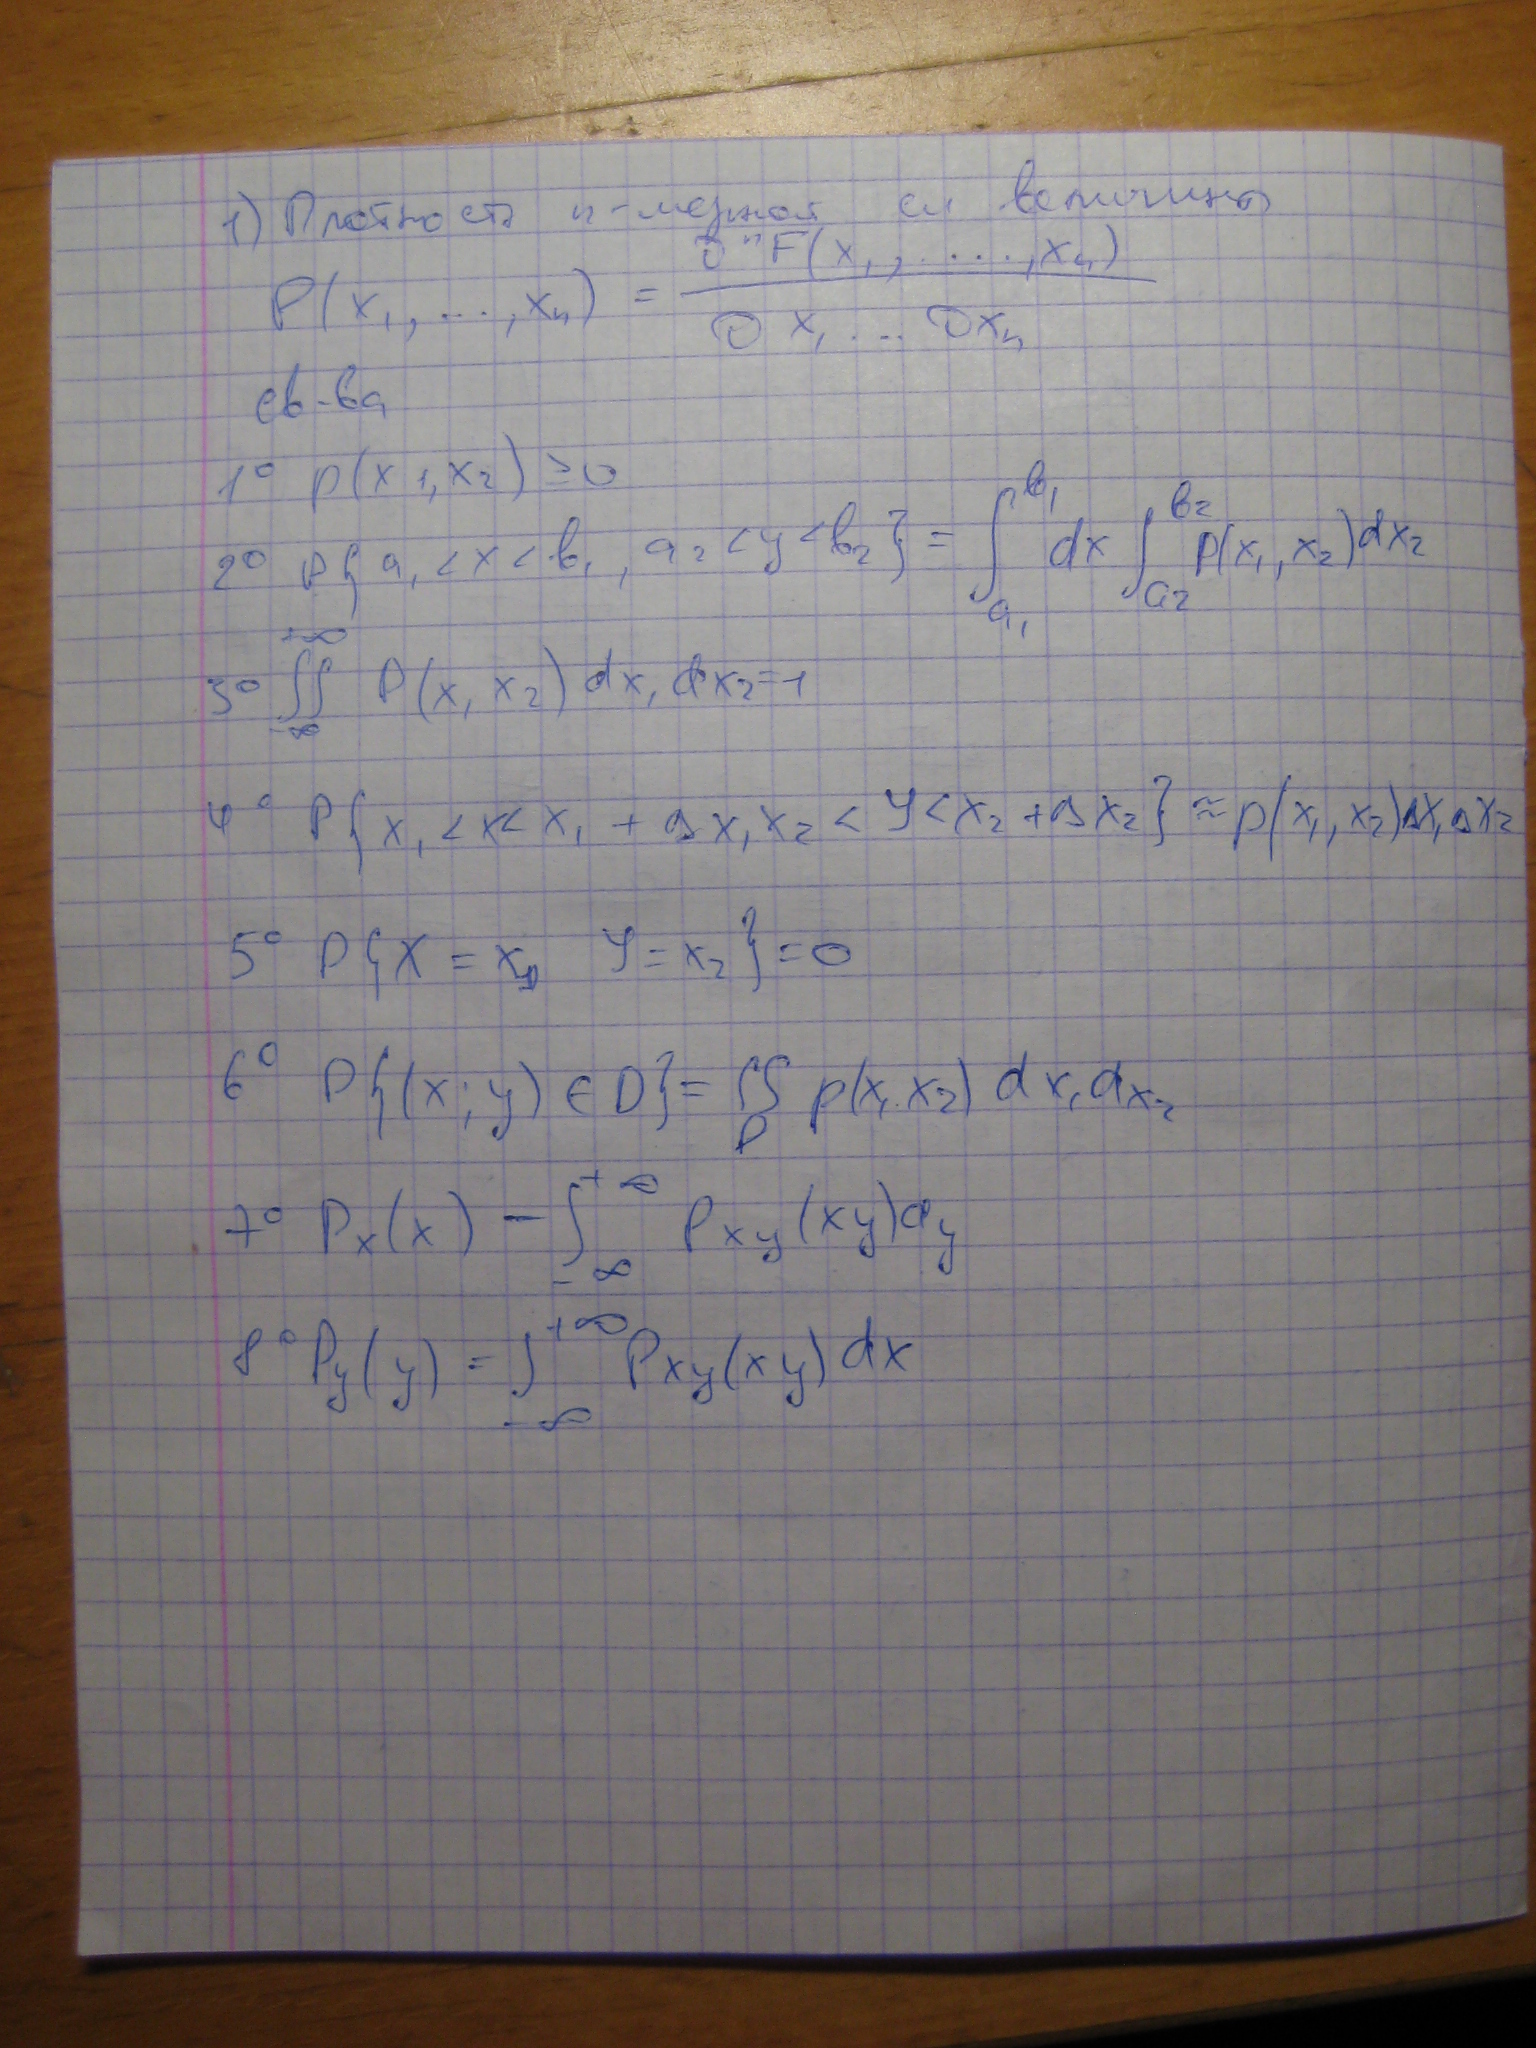 1) Плотность n-мерной сл величины
P(x₁, ..., xₙ) = ∂ⁿF(x₁, ....., xₙ) / ∂x₁ ... ∂xₙ
св-ва
1° p(x1, x₂) ≥ 0
2° P{a₁ < x < b₁, a₂ < y < b₂} = ∫_{a₁}^{b₁} dx ∫_{a₂}^{b₂} p(x₁, x₂) dx₂
3° ∬_{-∞}^{+∞} P(x, x₂) dx₁ dx₂ = 1
4° P{x₁ < x < x₁ + Δx, x₂ < Y < x₂ + Δx₂} ≈ p(x₁, x₂) Δx₁ Δx₂
5° P{X = x₁, Y = x₂} = 0
6° P{(x; y) ∈ D} = ∬_D p(x₁ x₂) dx₁ dx₂
7° Pₓ(x) - ∫_{-∞}^{+∞} P_{xy}(xy) dy
8° P_y(y) = ∫_{-∞}^{+∞} P_{xy}(xy) dx